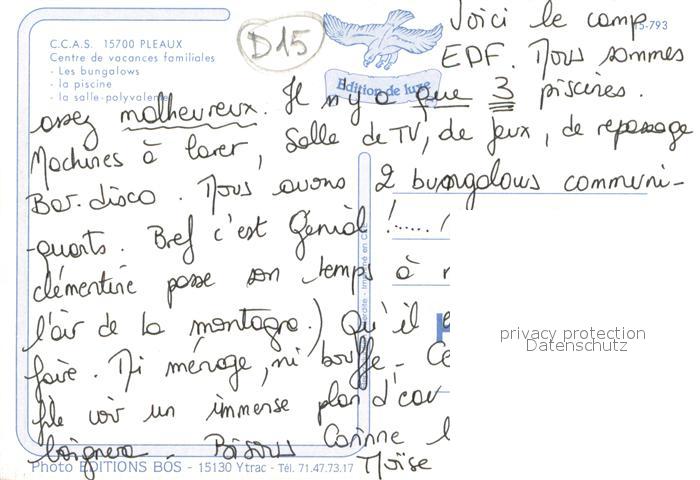 D15
Voici le camp
5-793
C.C.A.S. 15700 PLEAUX
Centre de vacances familiales
- Les bungalows
- la piscine
- la salle-polyvalente
Edition de luxe
EDF. Nous sommes
assez malheureux. Il n'y a que 3 piscines.
Salle de TV, de jeux, de repassage
Machines à laver,
Bar-disco. Nous avons 2 bungalous communi-
-quants. Bref c'est Génial !...... !
clémentine passe son temps à
l'air de la montagne.) Qu'il
faire. Ni ménage, ni bouffe. Ce
file voir un immense plan d'eau
baignera. Bisous Corinne
Moïse
Photo EDITIONS BOS - 15130 Ytrac - Tél. 71.47.73.17
privacy protection
Datenschutz